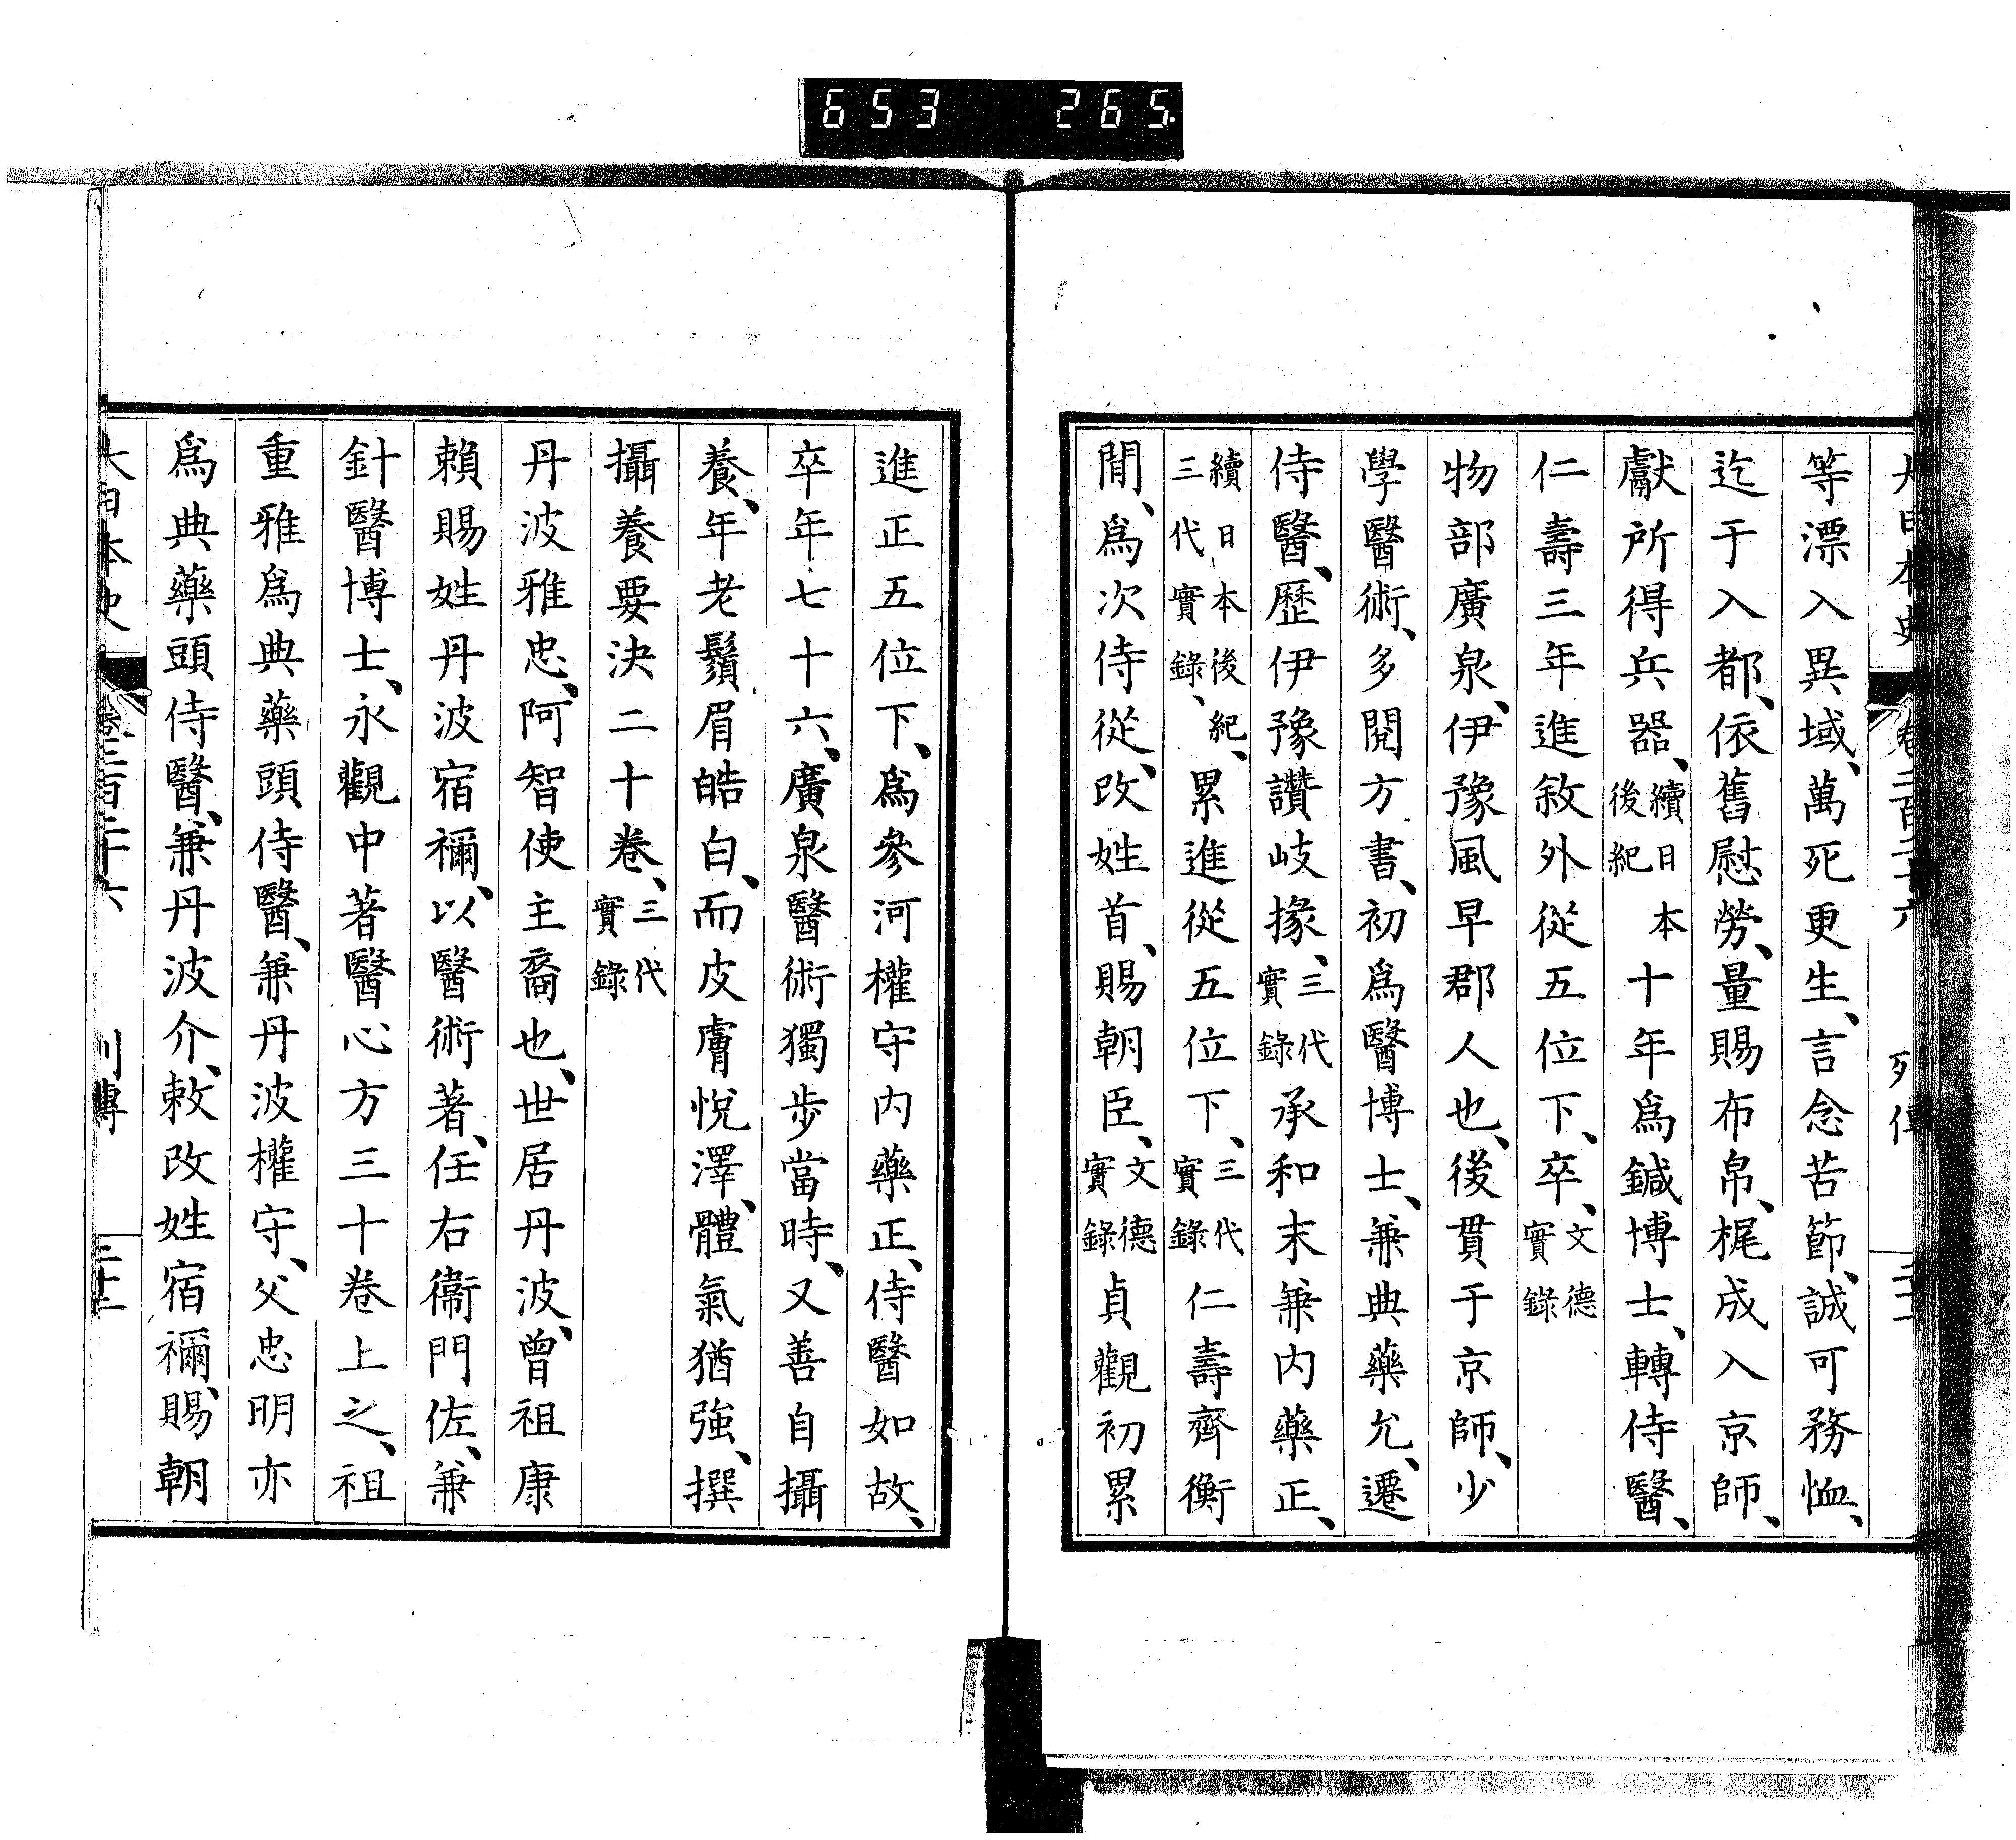 653 265.
大日本史 卷二百二十六 列傳
等漂入異域、萬死更生、言念苦節、誠可務恤、
迄于入都、依舊慰勞、量賜布帛、梶成入京師、
獻所得兵器、續日本後紀十年爲鍼博士、轉侍醫、
仁壽三年進敘外從五位下、卒、文德實錄
物部廣泉、伊豫風早郡人也、後貫于京師、少
學醫術、多閱方書、初爲醫博士、兼典藥允、遷
侍醫、歷伊豫讚岐掾、三代實錄承和末兼内藥正、
續日本後紀、三代實錄、累進從五位下、三代實錄仁壽齊衡
閒、爲次侍從、改姓首、賜朝臣、文德實錄貞觀初累
進正五位下、爲參河權守内藥正、侍醫如故、
卒年七十六、廣泉醫術獨步當時、又善自攝
養、年老鬚眉皓白、而皮膚悅澤、體氣猶強、撰
攝養要決二十卷、三代實錄
丹波雅忠、阿智使主裔也、世居丹波、曾祖康
賴賜姓丹波宿禰、以醫術著、任右衞門佐、兼
針醫博士、永觀中著醫心方三十卷上之、祖
重雅爲典藥頭侍醫、兼丹波權守、父忠明亦
爲典藥頭侍醫、兼丹波介、敕改姓宿禰、賜朝
大日本史 卷二百二十六 列傳